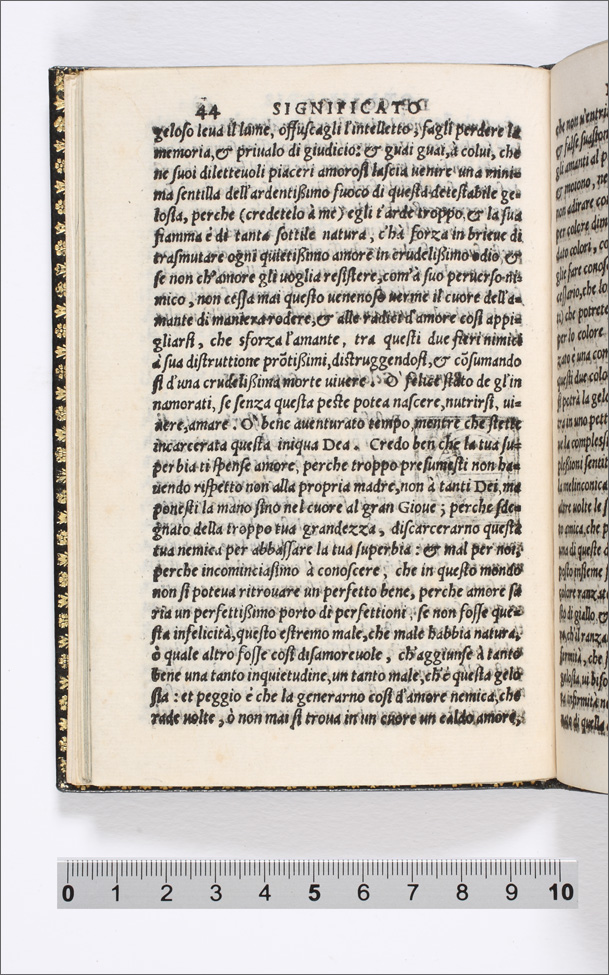 44 SIGNIFICATO
geloso leua il lume, offuscagli l'intelletto, fagli perdere la
memoria, & priualo di giudicio: & guai guai, à colui, che
ne suoi diletteuoli piaceri amorosi lascia uenire una mini⸗
ma sentilla dell'ardentißimo fuoco di questa detestabile ge⸗
losia, perche (credetelo à me) egli t'arde troppo, & la sua
fiamma é di tanta sottile natura, c'hà forza in brieue di
trasmutare ogni quietißimo amore in crudelißimo odio, &
se non ch'amore gli uoglia resistere, com'à suo peruerso ni⸗
mico, non cessa mai questo uenenoso uerme il cuore dell'a⸗
mante di maniera rodere, & alle radici d'amore cosi appi⸗
gliarsi, che sforza l'amante, tra questi due fieri nimici
à sua distruttione prõtißimi, distruggendosi, & cõsumando
si d'una crudelißima morte uiuere. O' felice stato de gl'in
namorati, se senza questa peste potea nascere, nutrirsi, ui⸗
uere, amare. O' bene auenturato tempo, mentre che stette
incarcerata questa iniqua Dea. Credo ben che la tua su⸗
perbia ti spense amore, perche troppo presumesti non ha⸗
uendo rispetto non alla propria madre, non à tanti Dei, ma
ponesti la mano sino nel cuore al gran Gioue; perche sde⸗
gnato della troppo tua grandezza, discarcerarno questa
tua nemica per abbassare la tua superbia: & mal per noi,
perche incominciasimo à conoscere, che in questo mondo
non si poteua ritrouare un perfetto bene, perche amore sa
ria un perfettißimo porto di perfettioni, se non fosse que⸗
sta infelicità, questo estremo male, che male habbia natura,
ò quale altro fosse cosi disamoreuole, ch'aggiunse à tanto
bene una tanto inquietudine, un tanto male, ch'é questa gelo
sia: et peggio é che la generarno cosi d'amore nemica, che
rade uolte, ò non mai si troua in un cuore un caldo amore,
0 1 2 3 4 5 6 7 8 9 10